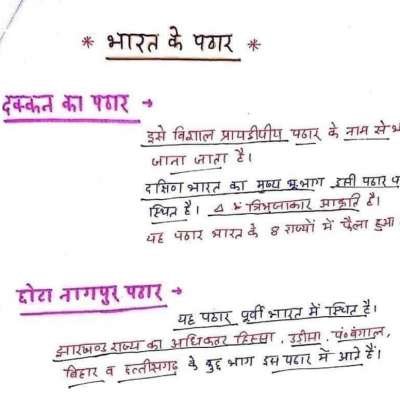 * भारत के पठार *
दक्कन का पठार →
इसे विशाल प्रायद्वीपीय पठार के नाम से
जाना जाता है।
दक्षिण भारत का मुख्य भू-भाग इसी पठार
स्थित है। △ त्रिभुजाकार आकृति है।
यह पठार भारत के 8 राज्यों में फैला हुआ
छोटा नागपुर पठार →
यह पठार पूर्वी भारत में स्थित है।
झारखण्ड राज्य का अधिकतर हिस्सा, उड़ीसा, पं०बंगाल,
बिहार व छत्तीसगढ़ के कुछ भाग इस पठार में आते हैं।